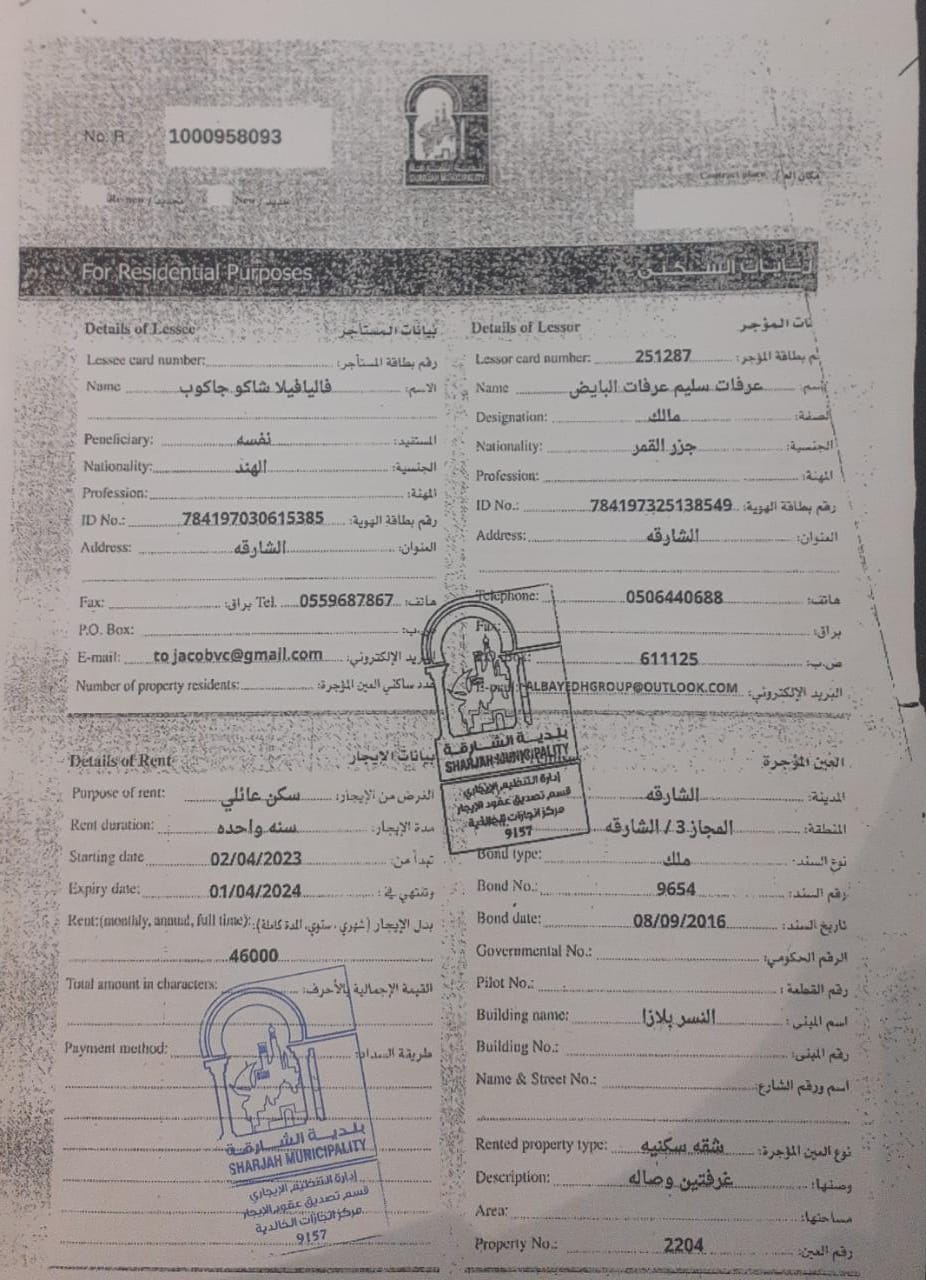 No. R
1000958093
بلدية الشارقة
SHARJAH MUNICIPALITY
Contract place
Renew / تجديد
New / جديد
For Residential Purposes
Details of Lessee
بيانات المستأجر
Lessee card number:
رقم بطاقة المستأجر:
Name
فاليافيلا شاكو جاكوب
الاسم:
Peneficiary:
نفسه
المستفيد:
Nationality:
الهند
الجنسية:
Profession:
المهنة:
ID No.:
784197030615385
رقم بطاقة الهوية:
Address:
الشارقه
العنوان:
Fax:
براق:
Tel.
0559687867
هاتف:
P.O. Box:
E-mail:
to jacobvc@gmail.com
البريد الإلكتروني:
Number of property residents:
عدد ساكني العين المؤجرة:
Details of Lessor
Lessor card number:
251287
بطاقة المؤجر:
Name
عرفات سليم عرفات البايض
Designation:
مالك
الصفة:
Nationality:
جزر القمر
الجنسية:
Profession:
المهنة:
ID No.:
784197325138549
رقم بطاقة الهوية:
Address:
الشارقه
العنوان:
Telephone:
0506440688
هاتف:
Fax:
براق:
611125
ص.ب:
ALBAYEDHGROUP@OUTLOOK.COM
البريد الإلكتروني:
بلدية الشارقة
SHARJAH MUNICIPALITY
إدارة التنظيم الإيجاري
قسم تصديق عقود الإيجار
مركز انجازات الخالدية
9157
Details of Rent
بيانات الايجار
Purpose of rent:
سكن عائلي
الغرض من الإيجار:
Rent duration:
سنه واحده
مدة الإيجار:
Starting date
02/04/2023
تبدأ من:
Expiry date:
01/04/2024
وتنتهي في:
Rent:(monthly, annual, full time):
بدل الإيجار (شهري، سنوي، المدة كاملة):
46000
Total amount in characters:
القيمة الإجمالية بالأحرف:
Payment method:
طريقة السداد:
بلدية الشارقة
SHARJAH MUNICIPALITY
إدارة التنظيم الإيجاري
قسم تصديق عقود الإيجار
مركز انجازات الخالدية
9157
العين المؤجرة
الشارقه
المدينة:
المجاز 3 / الشارقه
المنطقة:
Bond type:
ملك
نوع السند:
Bond No.:
9654
رقم السند:
Bond date:
08/09/2016
تاريخ السند:
Governmental No.:
الرقم الحكومي:
Pilot No.:
رقم القطعة:
Building name:
النسر بلازا
اسم المبنى:
Building No.:
رقم المبنى:
Name & Street No.:
اسم ورقم الشارع:
Rented property type:
شقه سكنيه
نوع العين المؤجرة:
Description:
غرفتين وصاله
وصفها:
Area:
مساحتها:
Property No.:
2204
رقم العين: